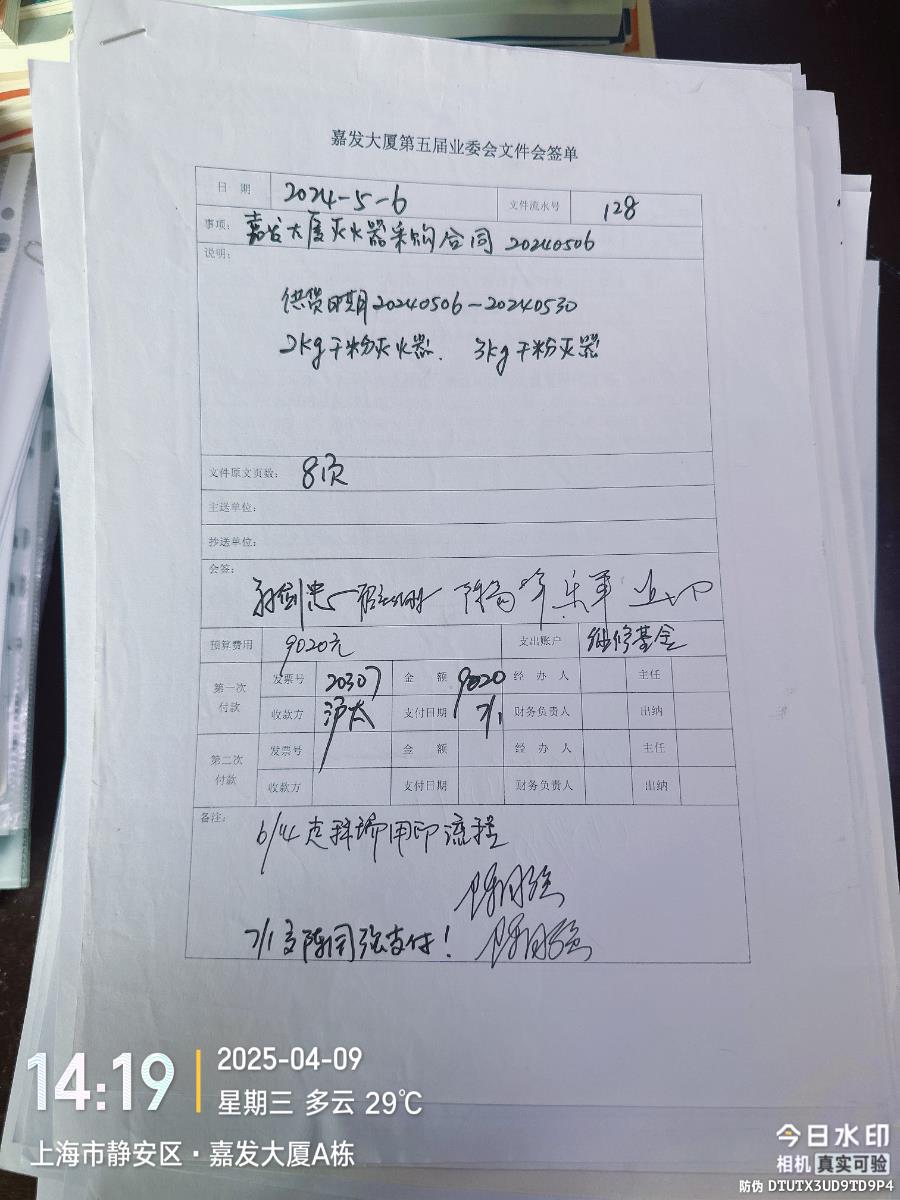 嘉发大厦第五届业委会文件会签单
日 期 2024-5-6 文件流水号 128
事项： 嘉发大厦灭火器采购合同 20240506
说明：
供货日期20240506-20240530
2kg干粉灭火器. 3kg干粉灭器
文件原文页数： 8页
主送单位：
抄送单位：
会签：
预算费用 9020元 支出账户 维修基金
第一次付款 发票号 20307 金 额 9020 经 办 人 主任
收款方 沪太 支付日期 7/1 财务负责人 出纳
第二次付款 发票号 金 额 经 办 人 主任
收款方 支付日期 财务负责人 出纳
备注：
6/14 走 用印流程
7/1 陈同强支付！
14:19 2025-04-09
星期三 多云 29℃
上海市静安区·嘉发大厦A栋
今日水印
相机 真实可验
防伪 DTUTX3UD9TD9P4